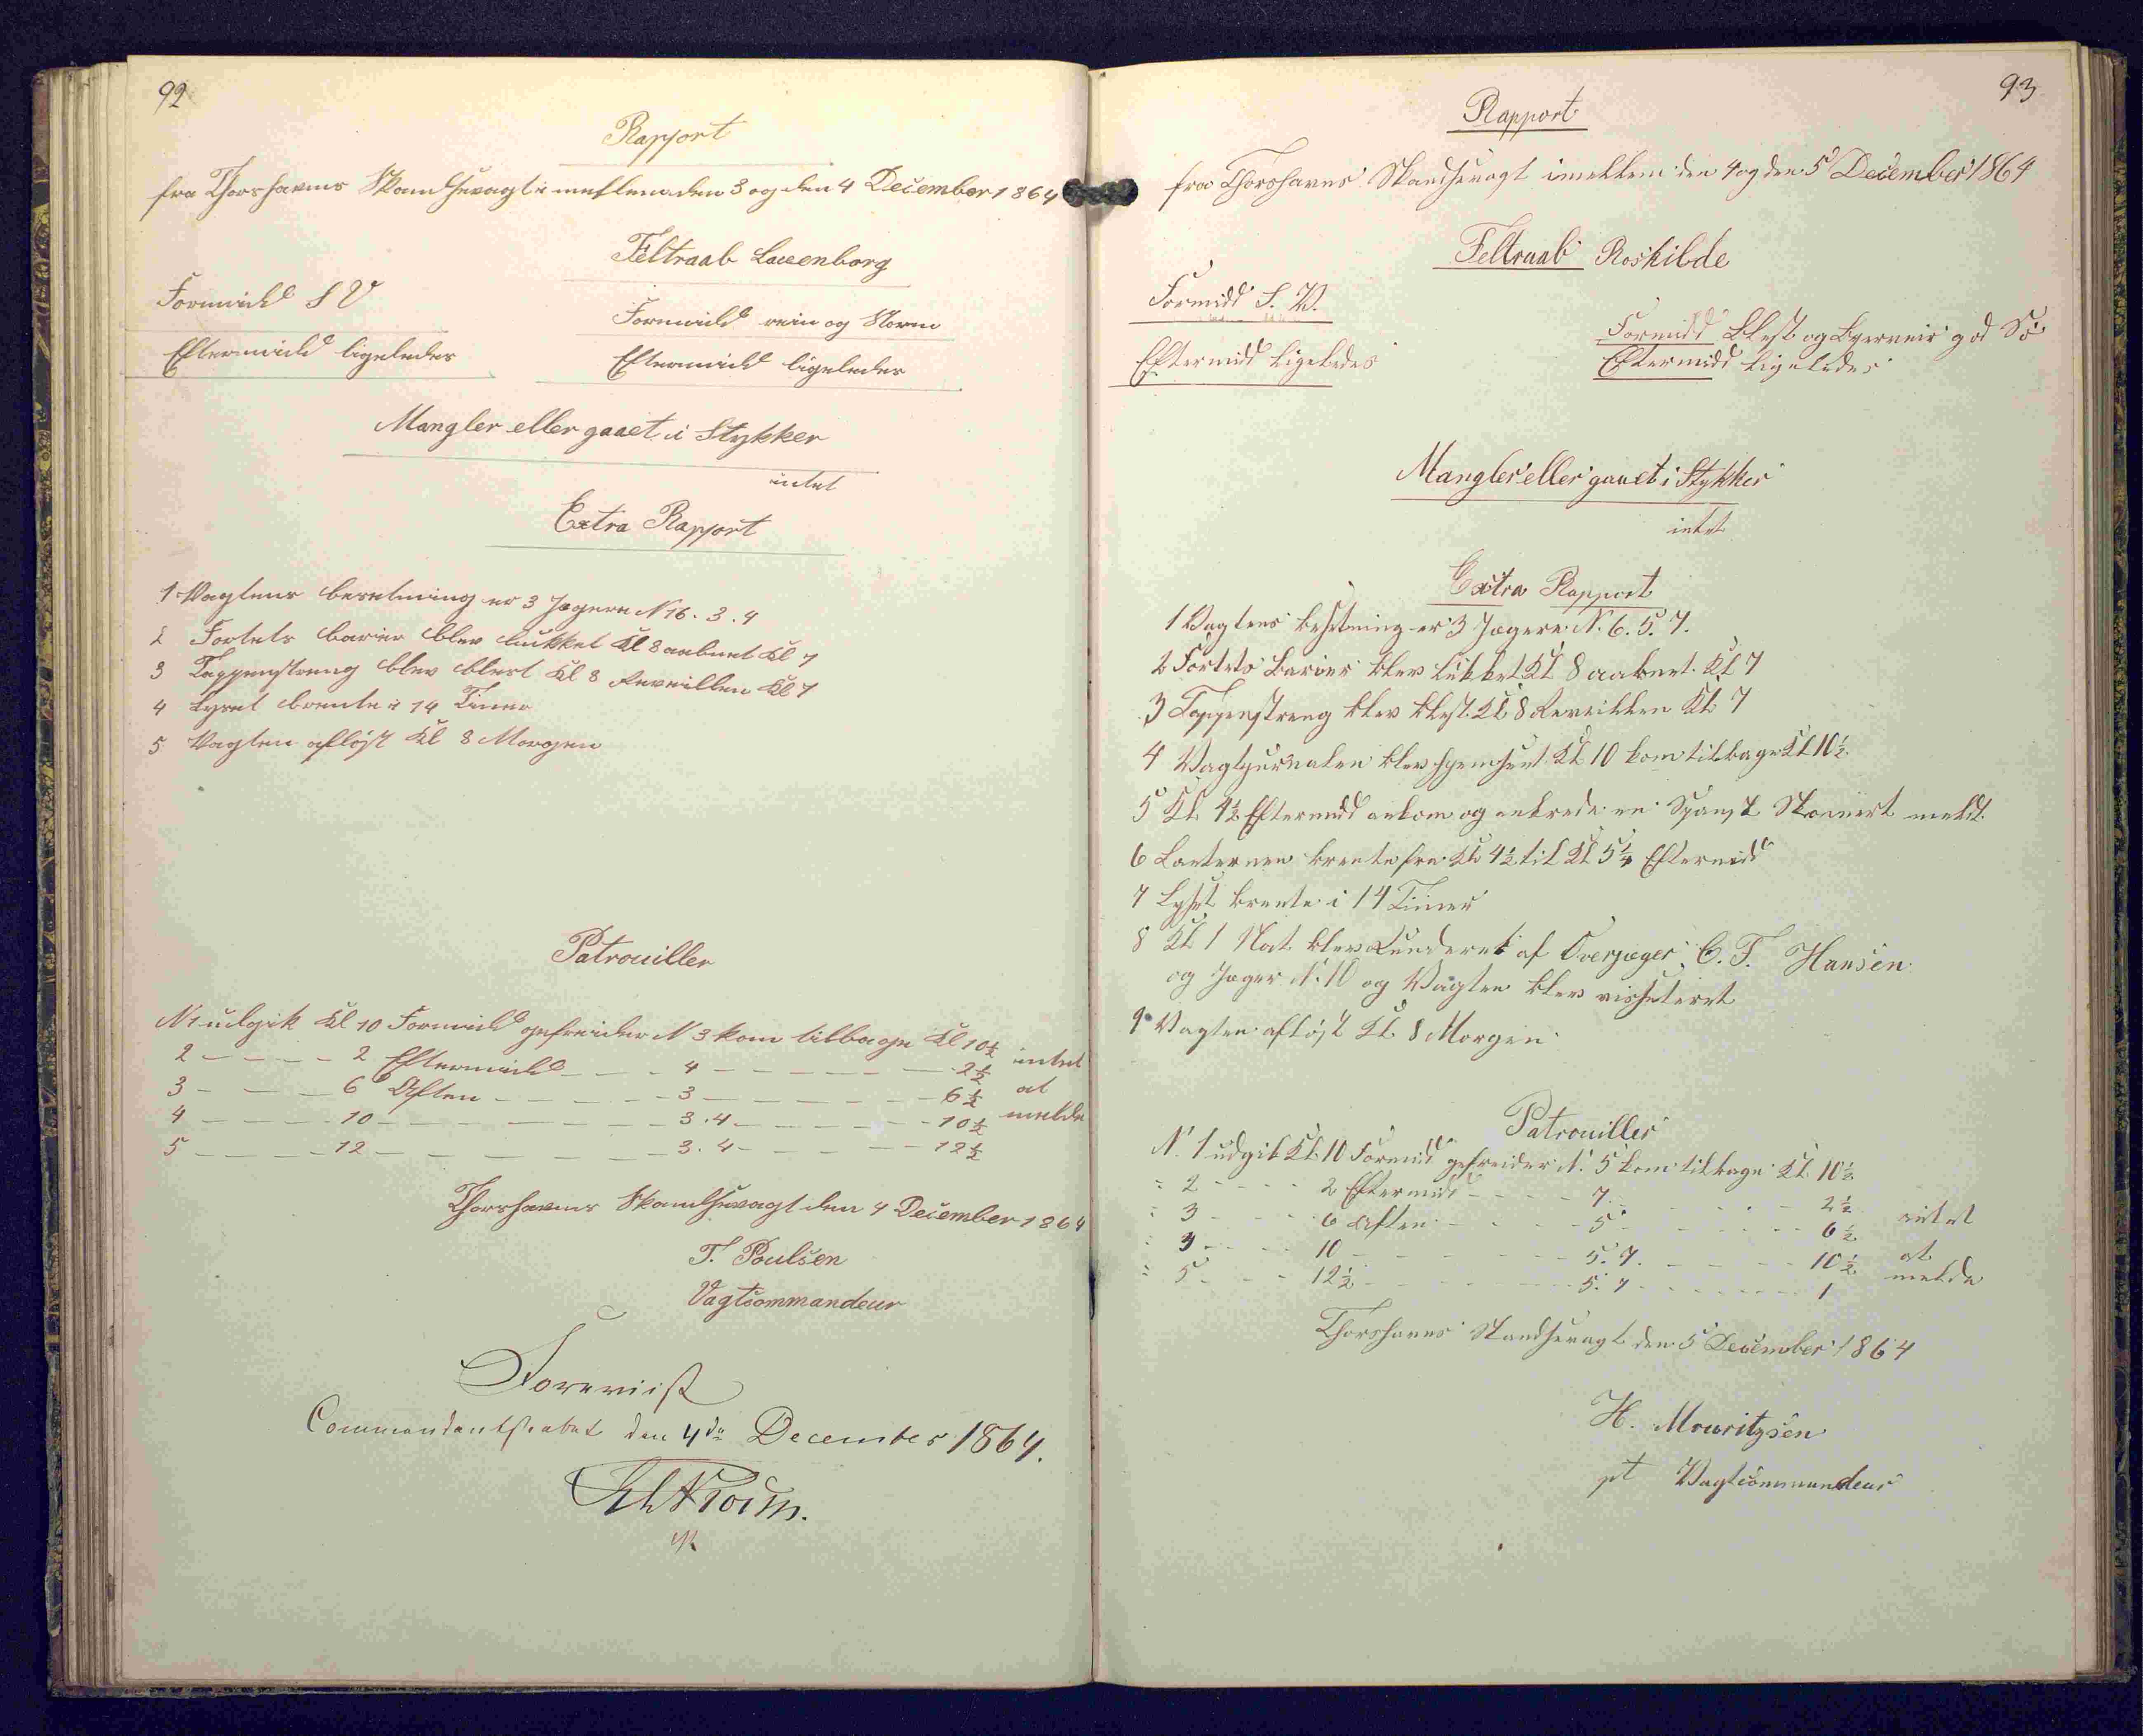 92
Rapport
fra Thorshavns Skandsevagt imellem den 3 og den 4 December 1864
Feltraab Lauenborg
Formidd S V
Formidd rein og Storm
Eftermidd ligeledes
Eftermidd ligeledes
Mangler eller gaaet i Stykker
intet
Extra Rapport
1 Vagtens besetning er 3 Jægere N 16. 3. 4
2 Fortets barier blev lukket Kl 8 aabnet Kl 7
3 Tappenstreng blev blest Kl 8 Reveillen Kl 7
4 Lyset brente i 14 Timer
5 Vagten afløst Kl 8 Morgen
Patrouiller
N 1 udgik Kl 10 Formidd gefreider N 3 kom tilbage Kl 10½
2 - - - - 2 Eftermidd - - - 4 - - - - - - 2½ intet
3 - - - 6 Aften - - - - - 3 - - - - - 6½ at
4 - - - - 10 - - - - - - - 3. 4 - - - - - 10½ melde
5 - - - - 12 - - - - - - - 3. 4 - - - - 12½
Thorshavns Skandsevagt den 4 December 1864
T. Poulsen
Vagtcommandeur
Foreviist
Commandantskabet den 4de December 1864.
93
Rapport
fra Thorshavns Skandsevagt imellem den 4 og den 5 December 1864
Feltraab Roskilde
Formidd S. V.
Formidd Blest og Byerveir god Sø
Eftermidd ligeledes
Eftermidd ligeledes
Mangler eller gaaet i Stykker
intet
Extra Rapport
1 Vagtens besetning er 3 Jægere N. 6. 5. 7.
2 Fortets barier blev lukket Kl 8 aabnet Kl 7
3 Tappenstreng blev blest Kl 8 Reveillen Kl. 7
4 Vagtjurnalen blev hjemsent Kl 10 kom tilbage Kl 10½
5 Kl. 4½ Eftermidd ankom og ankrede en Spansk Skonnert meldt.
6 Lanternen brente fra Kl. 4½ til Kl 5¼ Eftermidd
7 Lyset brente i 14 Timer
8 Kl 1 Nat blev Runderet af Overjæger C. F. Hansen
og Jæger N. 10 og Vagten blev visiteret
9 Vagten afløst Kl. 8 Morgen
Patrouiller
N. 1 udgik Kl. 10 Formid gefreider N. 5 kom tilbage Kl. 10½
" 2 - - - - 2 Eftermidd - - - - 7. - - - - - 2½ intet
" 3 - - - 6 Aften - - - - 5 - - - - - - 6½ at
" 4 - - - 10 - - - - - - 5. 7. - - - - 10½ melde
" 5 - - - 12½ - - - - - - 5. 7 - - - - - - 1
Thorshavns Skandsevagt den 5 December 1864
H. Mouritzsen
pt Vagtcommandeur